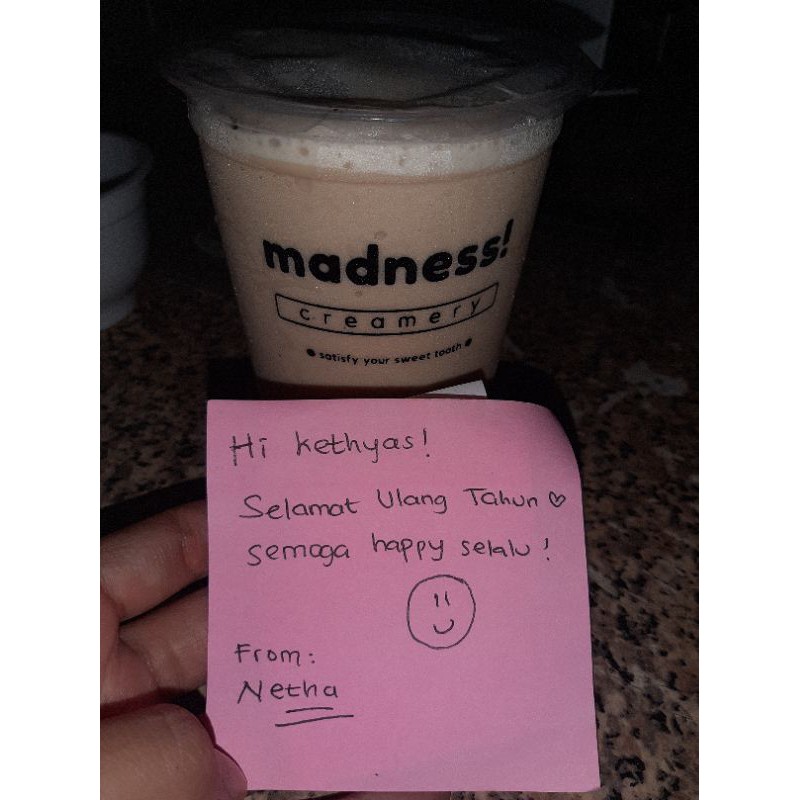 madness!
creamery
• satisfy your sweet tooth •
Hi kethyas!
Selamat Ulang Tahun ♡
semoga happy selalu!
From:
Netha